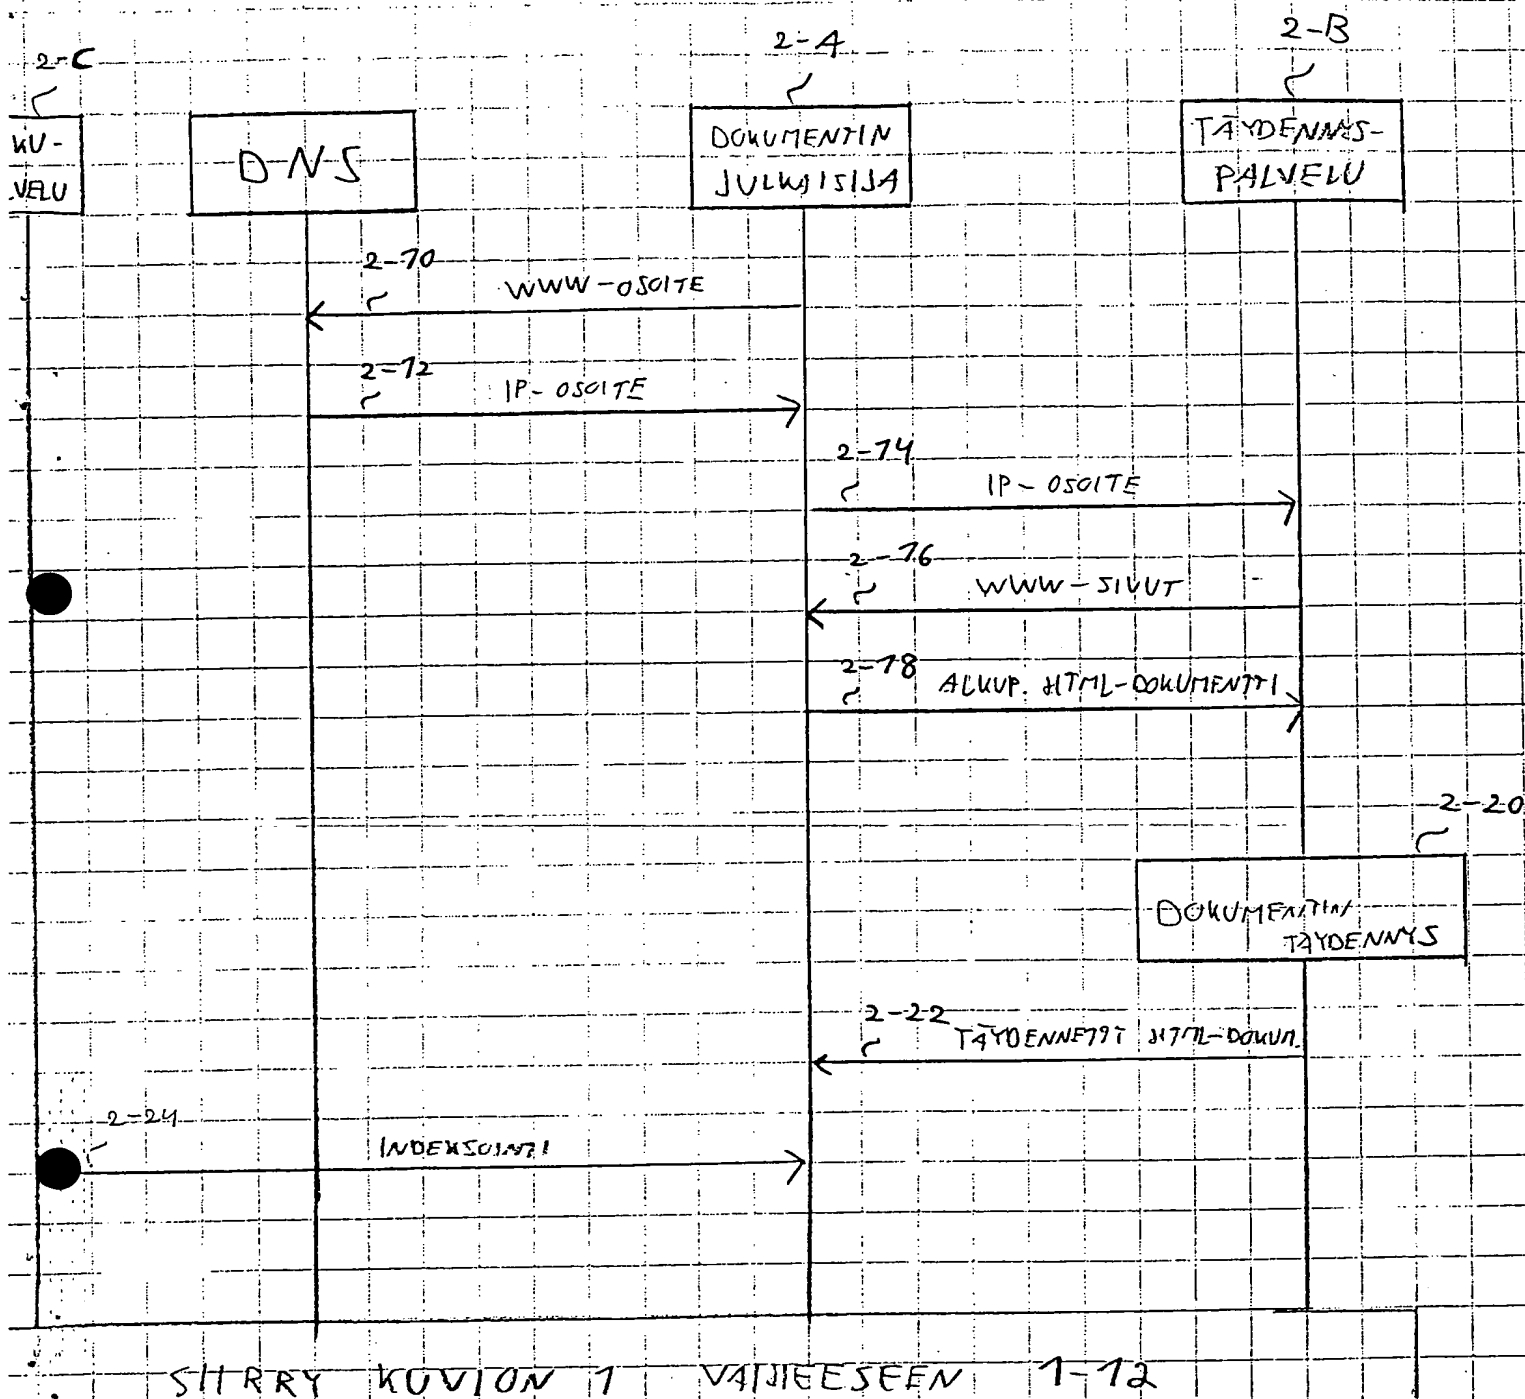 2-C
2-A
2-B
KU-
VELU
DNS
DOKUMENTIN
JULKAISIJA
TÄYDENNYS-
PALVELU
2-10
WWW-OSOITE
2-12
IP-OSOITE
2-14
IP-OSOITE
2-16
WWW-SIVUT
2-18
ALKUP. HTML-DOKUMENTTI
2-20
DOKUMENTIN
TÄYDENNYS
2-22
TÄYDENNETTY HTML-DOKUM.
2-24
INDEKSOINTI
SIIRRY KUVION 1 VAIHEESEEN 1-12